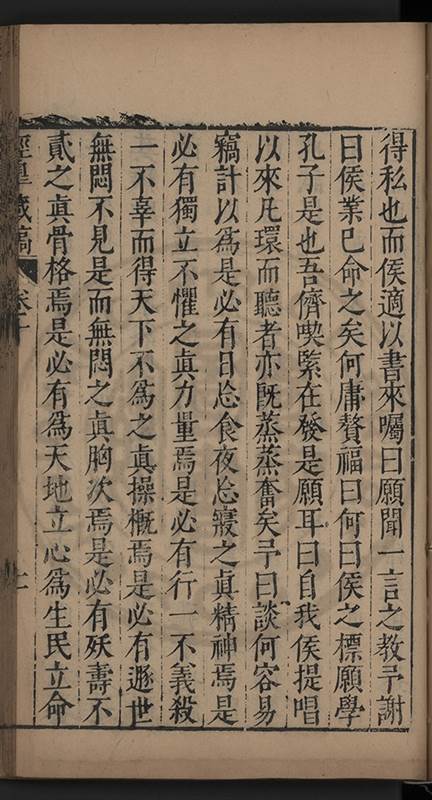 得私也而侯適以書來囑曰願聞一言之教予謝
曰侯業已命之矣何庸贅福曰何曰侯之標願學
孔子是也吾儕喫緊在發是願耳曰自我侯提唱
以來凡環而聽者亦旣蒸蒸奮矣予曰談何容易
竊計以爲是必有日忘食夜忘寢之眞精神焉是
必有獨立不懼之眞力量焉是必有行一不義殺
一不辜而得天下不爲之眞操概焉是必有遯世
無悶不見是而無悶之眞胸次焉是必有殀壽不
貳之眞骨格焉是必有爲天地立心爲生民立命
涇臯藏稿
卷十